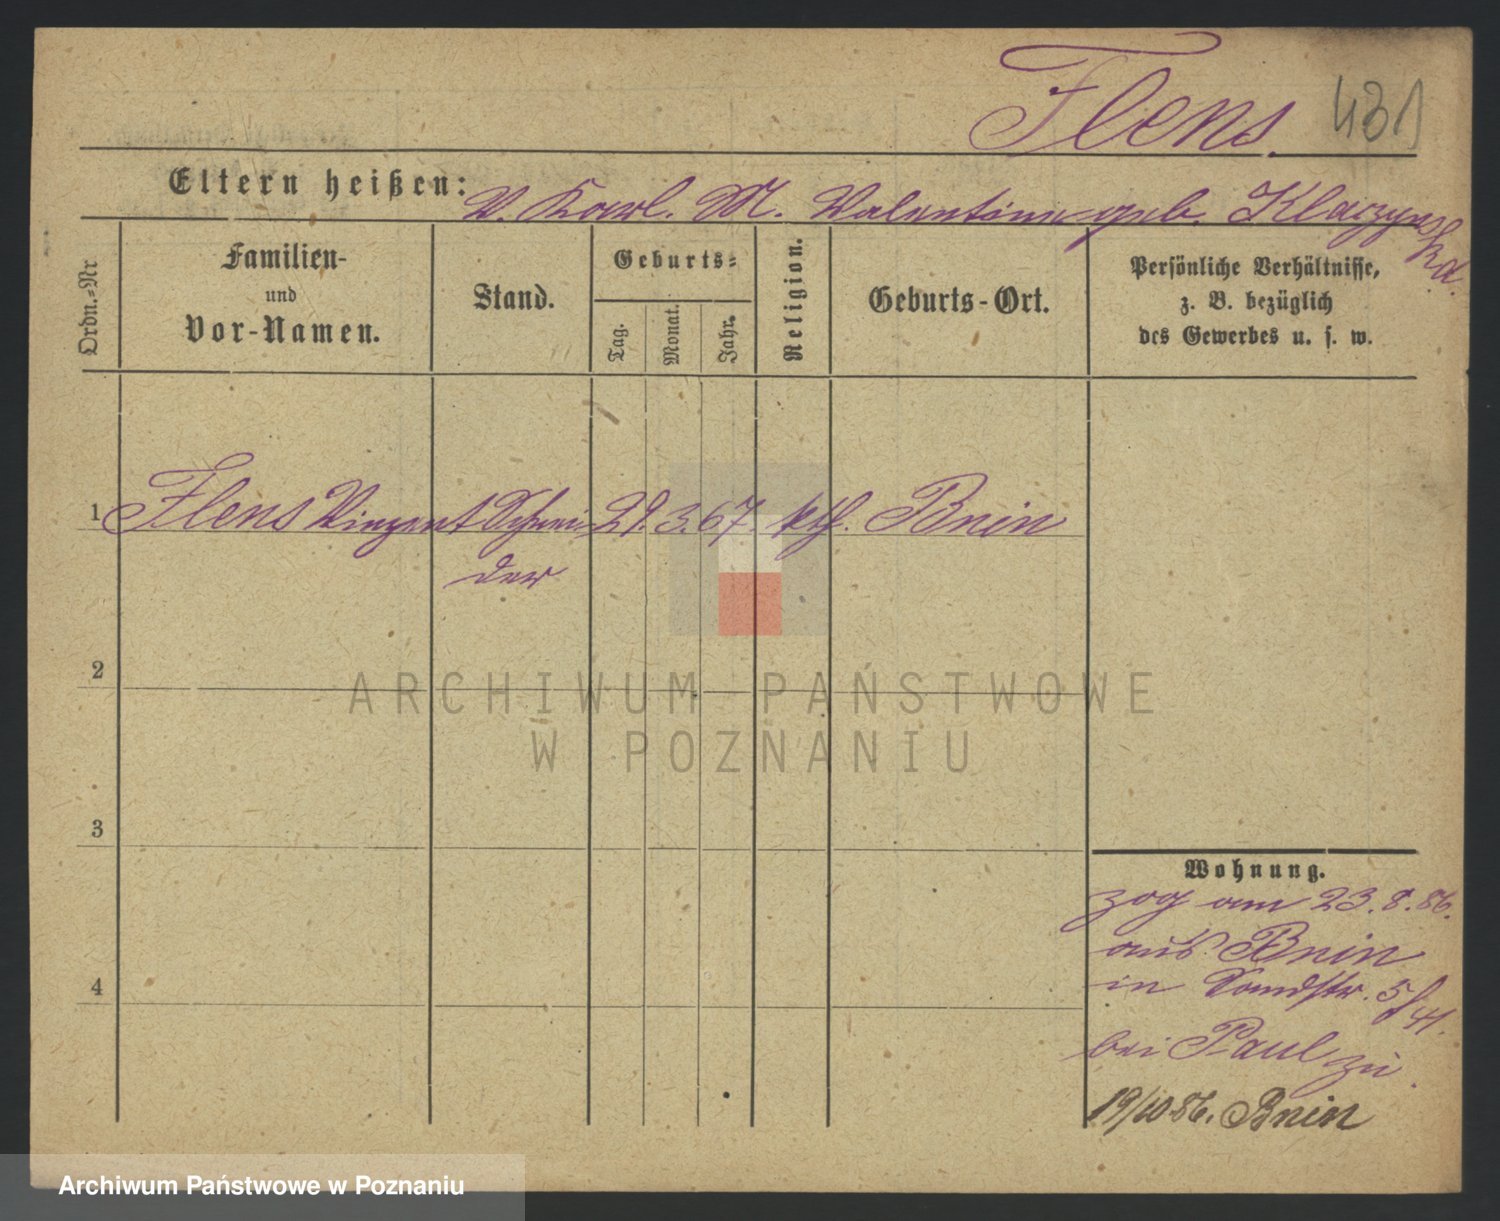 Flens. 431
Eltern heißen: V. Karl. M. Valentine geb. Klaczynska.
Ordn.-Nr
Familien-
und
Vor-Namen.
Stand.
Geburts-
Tag.
Monat.
Jahr.
Religion.
Geburts-Ort.
Persönliche Verhältnisse,
z. B. bezüglich
des Gewerbes u. s. w.
1 Flens Vinzent Schnei- 29. 3. 67. kth. Bnin
der
2
3
4
Wohnung.
zog am 23. 8. 86.
aus Bnin
in Sandstr. 5/41.
bei Paul zu.
19/10 86. Bnin
ARCHIWUM PAŃSTWOWE
W POZNANIU
Archiwum Państwowe w Poznaniu